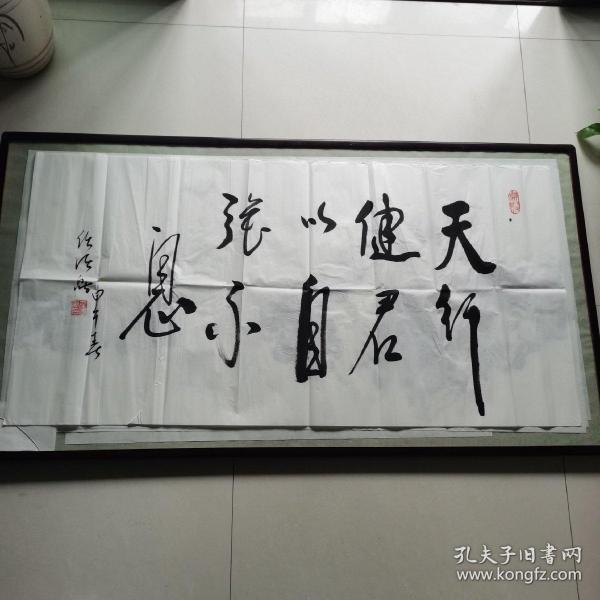 天行
健君
以自
强不
息
甲午春
孔夫子旧書网
www.kongfz.com